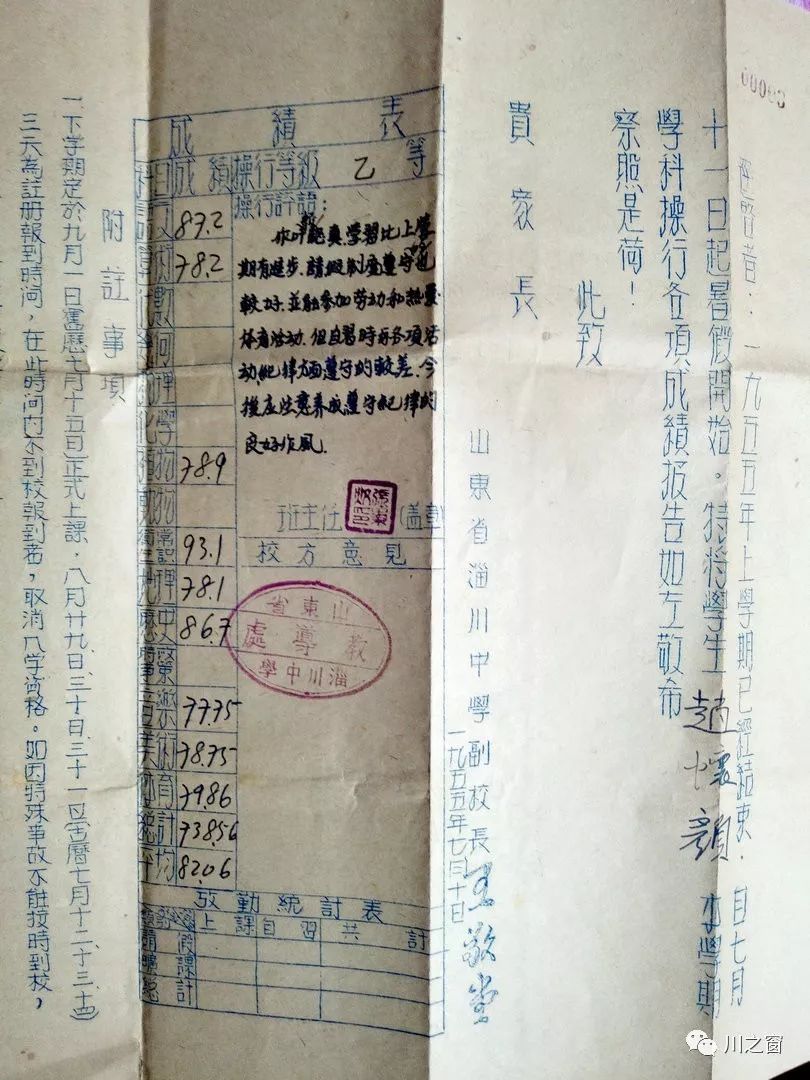 00093
逕啓者：一九五五年上學期已經結束．自七月
十一日起暑假開始。特將學生趙懷顏本學期
學科操行各項成績报告如左敬希
察照是荷！
此致
貴家長
山東省淄川中學副校長王敬堂
一九五五年七月十日
成績表
科目 成績 操行等級 乙等
87.2
算術 78.2
代數
幾何
物理
化學
植物 78.9
動物
衛生常識 93.1
地理 78.1
歷史 86.7
政策
音樂 77.75
美術 78.75
体育 79.86
總計 738.56
平均 82.06
操行評語：
作业認真，学習比上学
期有進步．請假制度遵守也
較好．並能参加劳动和热爱
体育活动．但自習時與各項活
动，紀律方面遵守的較差．今
後应注意养成遵守紀律的
良好作風．
班主任 (盖章)
校方意見
山東省
教導處
淄川中學
攷勤統計表
上課 自習 共計
請假
曠課
總計
附註事項
一 下学期定於九月一日(舊歷七月十五日)正式上課．八月廿九日、三十日、三十一日(舊曆七月十二、十三、十四)
三天為註册報到時间，在此時间内不到校報到者，取消入学資格。如因特殊事故不能按時到校，
川之窗